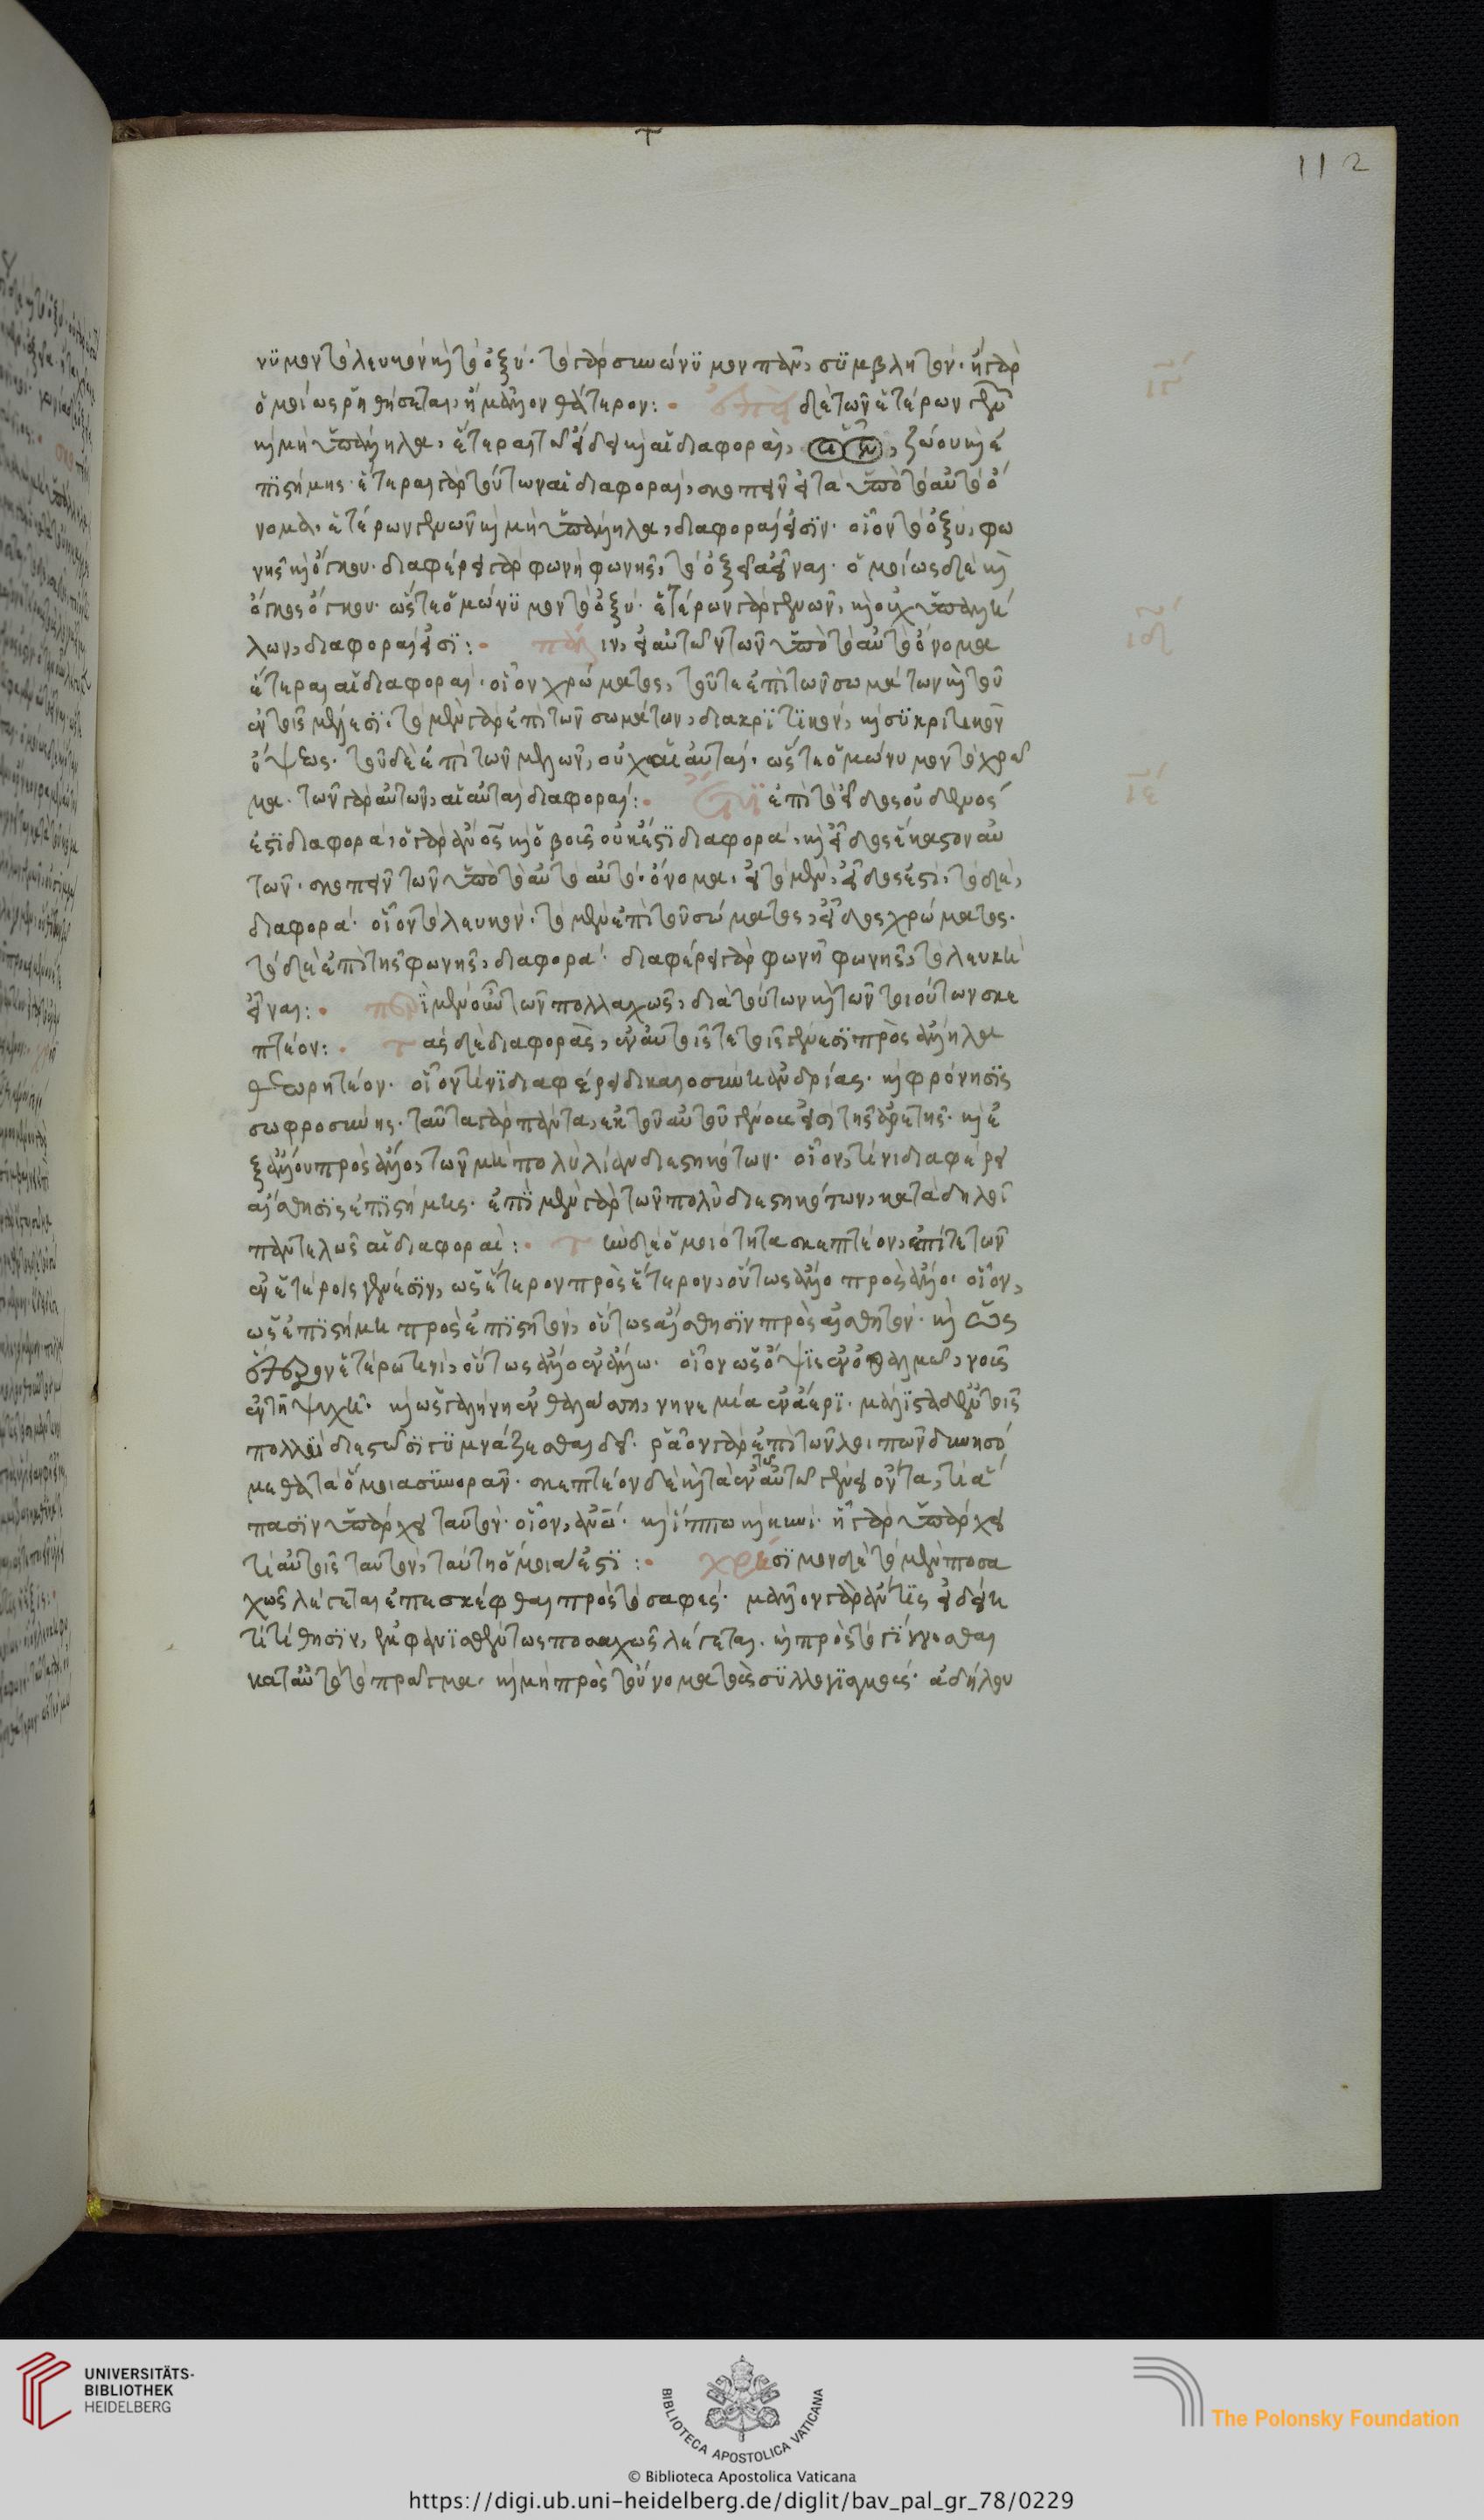 νϋμον τὸ λευκὸν καὶ τὸ ὀξύ· τὸ γὰρ συνώνϋμον πᾶν, σϋμβλητόν· ἢ γὰρ
ὁμοίως ῥηθήσεται, ἢ μᾶλλον θάτερον: ἐπεὶ δὲ τῶν ἑτέρων γενῶν
καὶ μὴ ὑπάλληλα, ἕτεραι τῶ εἴδει καὶ αἱ διαφοραὶ, οἷον, ζώου καὶ ἐ
πϊστήμης· ἕτεραι γὰρ τούτων αἱ διαφοραί, σκοπεῖν εἰ τὰ ὑπὸ τὸ αὐτὸ ὄ
νομα. ἑτέρων γενῶν καὶ μὴ ὑπάλληλα, διαφοραί εἰσϊν· οἷον τὸ ὀξύ, φω
νῆς καὶ ὄγκου· διαφέρει γὰρ φωνὴ φωνῆς, τὸ ὀξεία εἶναι· ὁμοίως δὲ καὶ
ὄγκος ὄγκου· ὥστε ὁμώνϋμον τὸ ὀξύ· ἑτέρων γὰρ γενῶν, καὶ οὐχ ὑπαλλή
λων, διαφοραί εἰσϊ: πάλιν, εἰ αὐτῶν τῶν ὑπὸ τὸ αὐτὸ ὄνομα
ἕτεραι αἱ διαφοραί· οἷον χρώματος, τοῦ τε ἐπὶ τῶν σωμάτων καὶ τοῦ
ἐν τοῖς μέλεσϊ· τὸ μὲν γὰρ ἐπὶ τῶν σωμάτων, διακρϊτϊκόν, καὶ σϋκριτικὸν
ὄψεως· τοῦ δὲ ἐπὶ τῶν μελῶν, οὐχ αἱ αὐταί. ὥστε ὁμώνυμον τὸ χρῶ
μα. τῶν γὰρ αὐτῶν, αἱ αὐταὶ διαφοραί: ἔτϊ ἐπὶ τὸ εἶδος οὐδενός
ἐστϊ διαφορά, ὁ γὰρ ἄνος καὶ ὁ βοῦς οὐκ ἔστϊ διαφορά, καὶ εἶδος ἕκαστον αὐ
τῶν· σκοπεῖν τῶν ὑπὸ τὸ αὐτὸ αὐτό· ὄνομα, εἰ τὸ μὲν, εἶδός ἐστι, τὸ δὲ,
διαφορά· οἷον τὸ λευκόν· τὸ μὲν ἐπὶ τοῦ σώματος, εἶδος χρώματος.
τὸ δὲ ἐπὶ τῆς φωνῆς, διαφορά· διαφέρει γὰρ φωνὴ φωνῆς, τὸ λευκὴ
εἶναι: περὶ μὲν οὖν τῶν πολλαχῶς, διὰ τούτων καὶ τῶν τοιούτων σκε
πτέον: τὰς δὲ διαφορὰς, ἐν αὐτοῖς τε τοῖς γένεσϊ πρὸς ἄλληλα
θεωρητέον· οἷον τίνϊ διαφέρει δικαιοσύνη ἀνδρίας· καὶ φρόνησϊς
σωφροσύνης· ταῦτα γὰρ πάντα, ἐκ τοῦ αὐτοῦ γένους ἐστὶ τῆς ἀρετῆς· καὶ ἐ
ξ ἄλλου πρὸς ἄλλο, τῶν μὴ πολὺ λίαν διεστηκότων· οἷον, τίνι διαφέρει
αἴσθησϊς ἐπϊστήμης· ἐπὶ μὲν γὰρ τῶν πολὺ διεστηκότων, κατάδηλοι
παντελῶς αἱ διαφοραὶ: τὴν δὲ ὁμοιότητα σκεπτέον, ἐπί τε τῶν
ἐν ἑτέροις γένεσϊν, ὡς ἕτερον πρὸς ἕτερον, οὕτως ἄλλο πρὸς ἄλλο· οἷον,
ὡς ἐπϊστήμη πρὸς ἐπϊστητόν, οὕτως αἴσθησϊν πρὸς αἰσθητόν· καὶ ὡς
ἕτερον ἑτέρω τινί, οὕτως ἄλλο ἐν ἄλλω· οἷον ὡς ὄψϊς ἐν ὀφθαλμῶ, νοῦς
ἐν τῆ ψυχῆ· καὶ ὡς γαλήνη ἐν θαλάσση, νηνεμία ἐν ἀέρϊ· μάλϊστα δ' ἐν τοῖς
πολλοὶ διεστῶσϊ γϋμνάζεσθαι δεῖ· ῥᾶον γὰρ ἐπὶ τῶν λοιπῶν δυνησό
μεθα τὰ ὅμοια σϋνορᾶν· σκεπτέον δὲ καὶ τὰ ἐν τῶ αὐτῶ γένει ὄντα, τί ἅ
πασϊν ὑπάρχει ταὐτόν· οἷον, ἀνω· καὶ ἵππω καὶ κυνί· ἧ γὰρ ὑπάρχει
τί αὐτοῖς ταυτόν, ταύτη ὅμοιά ἐστϊ: χρήσϊμον δὲ τὸ μὲν ποσα
χῶς λέγεται ἐπεσκέφθαι πρός τὸ σαφές· μᾶλλον γὰρ ἄν τϊς εἰδείη
τί τίθησϊν, ἐμφανϊσθέντος ποσαχῶς λέγεται. καὶ πρὸς τὸ γϊνεσθαι
κατ' αὐτὸ τὸ πρᾶγμα. καὶ μὴ πρὸς τοὔνομα τοὺς σϋλλογϊσμούς· ἀδήλου
112
ιγ
ιδ
ιε
UNIVERSITÄTS-
BIBLIOTHEK
HEIDELBERG
BIBLIOTECA APOSTOLICA VATICANA
The Polonsky Foundation
© Biblioteca Apostolica Vaticana
https://digi.ub.uni-heidelberg.de/diglit/bav_pal_gr_78/0229